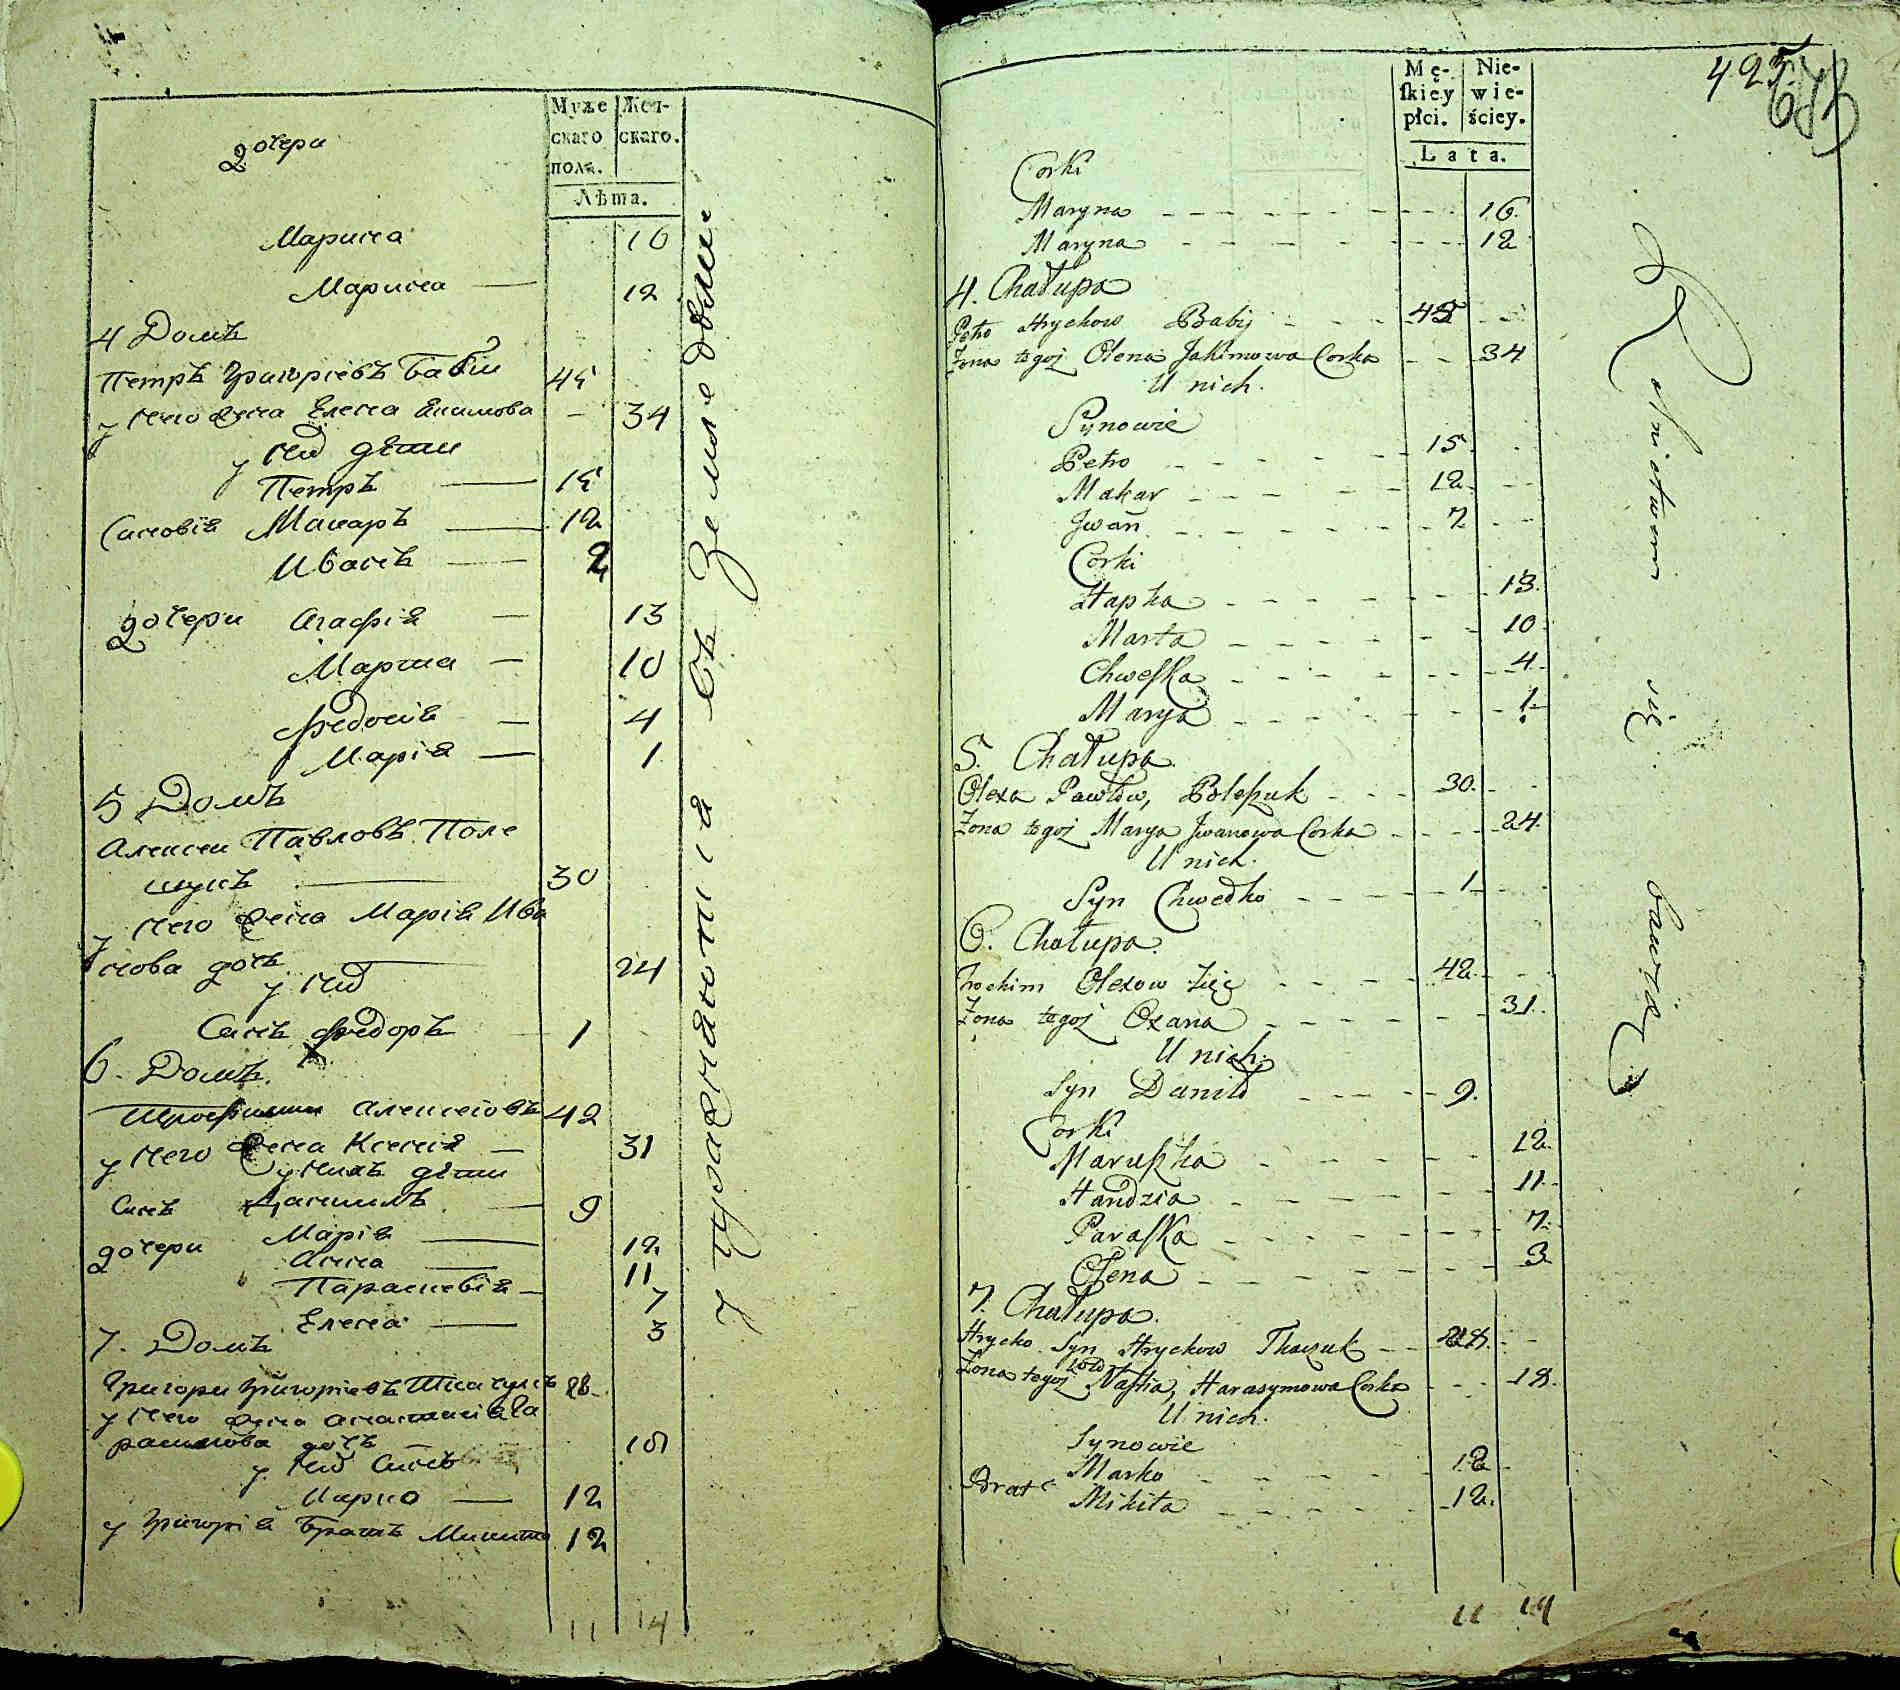 Муже
скаго
пола.
Жен-
скаго.
Лѣта.
дочери
Марина 16
Марина — 12
4 Домъ
Петръ Григорiевъ Бабiи 45
у него жена Елена Екимова — 34
у них дѣти
Петръ — 15
Синовiя Макаръ — 12
Иванъ — 7
дочери Агафiя — 13
Марта — 10
Федосiя — 4
Марiя — 1
5 Домъ
Алексеи Павловъ Поле
шукъ — 30
у него жена Марiя Ива
нова дочь — 24
у них
Синъ Федоръ 1
6. Домъ
Алексеювъ 42
у него жена Ксенiя — 31
у нихъ дѣти
Синъ Данiилъ — 9
дочери Марiя — 12
Анна — 11
Параскевiя — 7
Елена — 3
7. Домъ
Григори Григорiевъ Ткачукъ 28
у него жена Анастасiя Га
расимова дочь — 18
у них Синъ
Марко — 12
у Григорiя братъ Микита 12
11 14
Упражняются въ земледѣлiи.
425
683
Mę-
skiey
płci.
Nie-
wie-
ściey.
Lata.
Corki
Maryna 16.
Maryna 12
4. Chałupa
Petro Hryckow Babij 45
Żona tegoż Olena Jakimowa Corka 34
U nich.
Synowie
Petro 15
Makar 12
Jwan 7
Corki
Hapka 13.
Marta 10
Chweska 4.
Marya 1
5. Chałupa.
Olexa Pawłow, Poleszuk 30.
Żona tegoż Marya Jwanowa Corka 24.
U nich.
Syn Chwedko 1
6. Chałupa.
Trochim Olexow Zięć 42.
Żona tegoż Oxana 31.
U nich.
Syn Daniło 9.
Corki
Maruszka 12.
Handzia 11.
Paraska 7.
Olena 3
7. Chałupa.
Hrycko Syn Hryckow Tkaczuk 28.
Żona tegoż Nastia, Harasymowa Corka 18.
U nich.
Synowie
Marko 12
Brat Mikita 12.
11 14
Rolnictwem się bawią